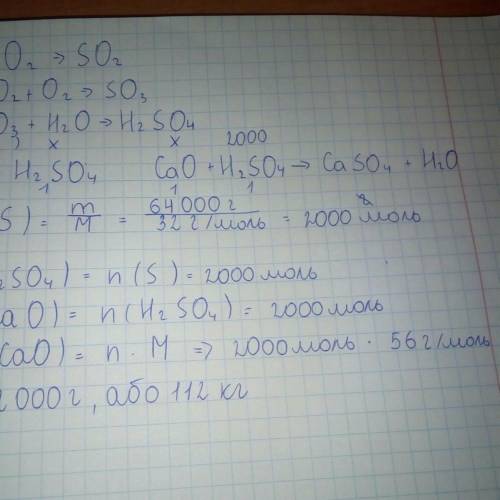 O₂ → SO₂
O₂ + O₂ → SO₃
O₃ + H₂O → H₂SO₄
x x 2000
H₂SO₄ CaO + H₂SO₄ → CaSO₄ + H₂O
1 1 1
S) = m/M = 64000 г / 32 г/моль = 2000 моль
₂SO₄) = n(S) = 2000 моль
aO) = n(H₂SO₄) = 2000 моль
CaO) = n · M => 2000 моль · 56 г/моль
2000 г, або 112 кг